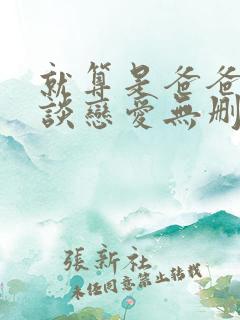 就算是爸爸
談戀愛無刪
張新社
未經同意禁止轉載